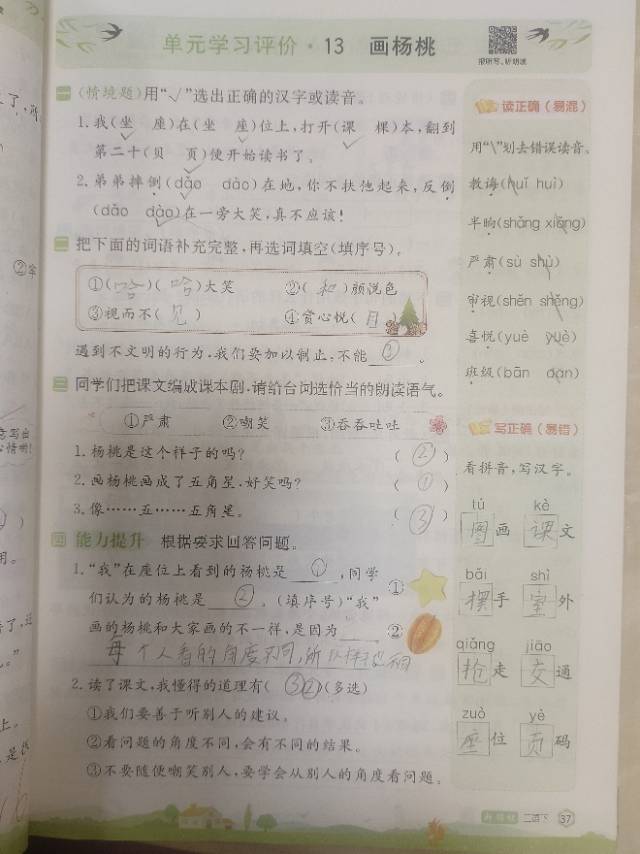 单元学习评价·13 画杨桃
一 (情境题)用“√”选出正确的汉字或读音。
1.我(坐 座)在(坐 座)位上,打开(课 棵)本,翻到
第二十(贝 页)便开始读书了。
2.弟弟摔倒(dǎo dào)在地,你不扶他起来,反倒
(dǎo dào)在一旁大笑,真不应该!
二 把下面的词语补充完整,再选词填空(填序号)。
①(哈)(哈)大笑 ②(和)颜悦色
③视而不(见) ④赏心悦(目)
遇到不文明的行为,我们要加以制止,不能②。
三 同学们把课文编成课本剧,请给台词选恰当的朗读语气。
①严肃 ②嘲笑 ③吞吞吐吐
1.杨桃是这个样子的吗? (②)
2.画杨桃画成了五角星,好笑吗? (①)
3.像……五……五角星。 (③)
四 能力提升 根据要求回答问题。
1.“我”在座位上看到的杨桃是①,同学
们认为的杨桃是②。(填序号)“我”
画的杨桃和大家画的不一样,是因为
每个人看的角度不同,所以样
①
②
2.读了课文,我懂得的道理有(③②)(多选)
①我们要善于听别人的建议。
②看问题的角度不同,会有不同的结果。
③不要随便嘲笑别人,要学会从别人的角度看问题。
读正确(易混)
用“\”划去错误读音。
教诲(huǐ huì)
半晌(shǎng xiǎng)
严肃(sù shù)
审视(shěn shěng)
喜悦(yuè yuè)
班级(bān dān)
写正确(易错)
看拼音,写汉字。
tú kè
图画 课文
bǎi shì
摆手 室外
qiǎng jiāo
抢走 交通
zuò yè
座位 页码
二语下 37